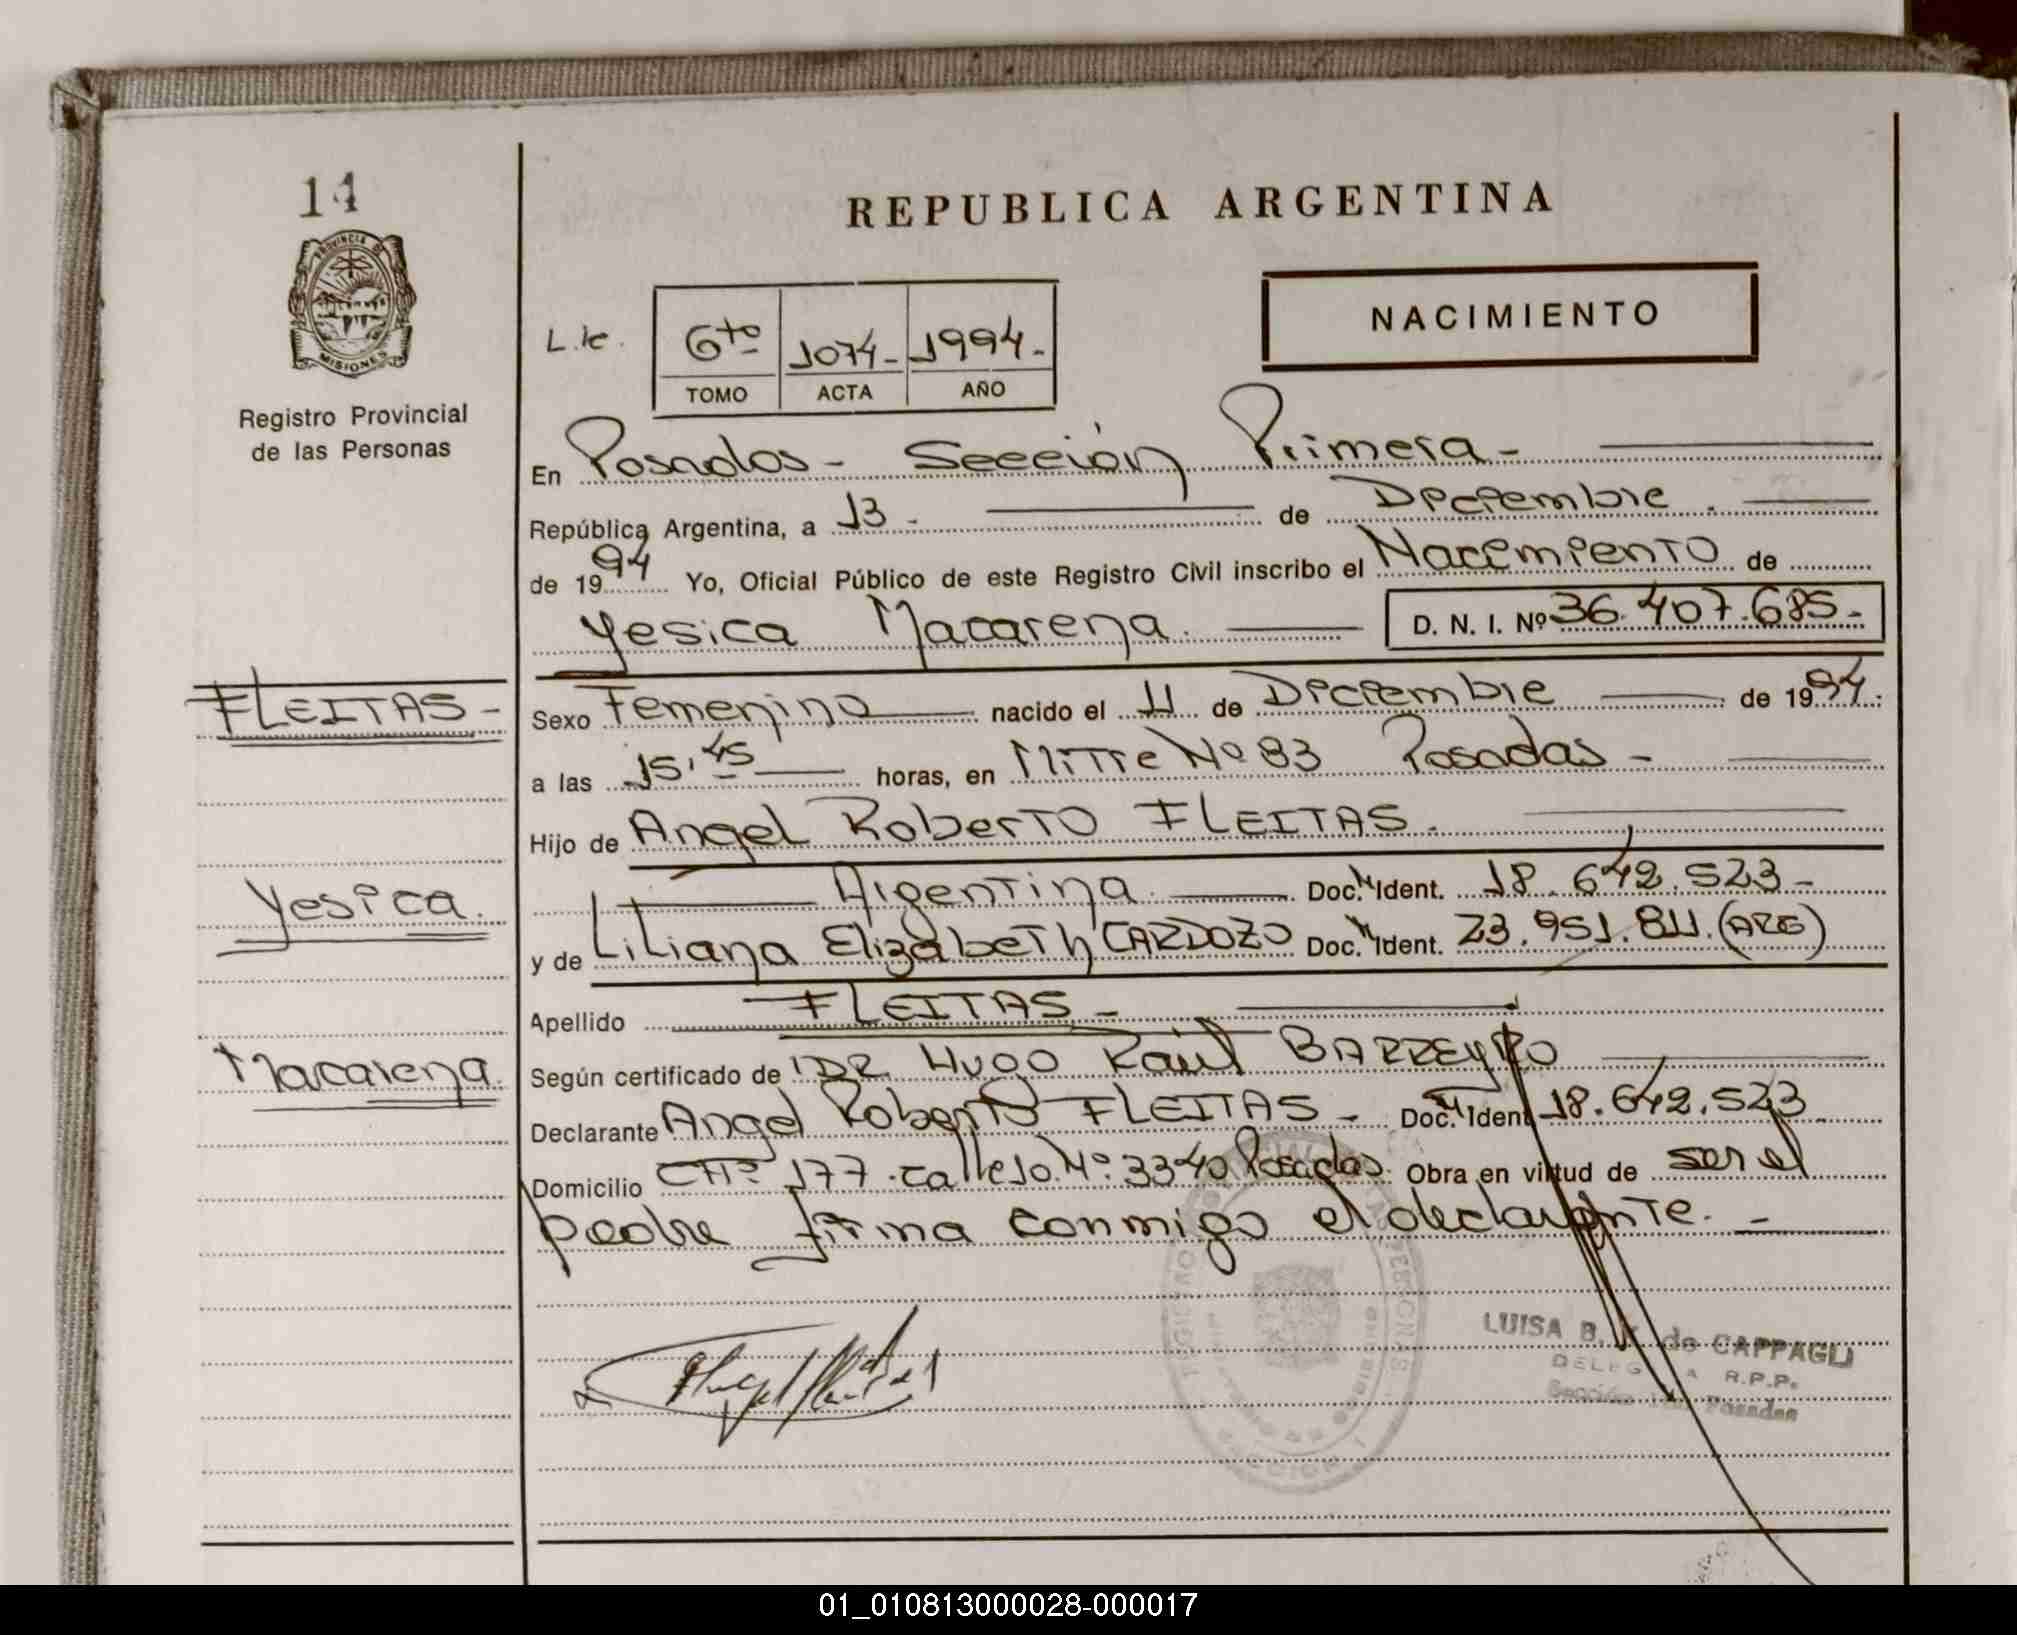 14
PROVINCIA DE
MISIONES
Registro Provincial
de las Personas
REPUBLICA ARGENTINA
NACIMIENTO
6to 1074- 1994-
TOMO ACTA AÑO
En Posadas - Sección Primera -
República Argentina, a 13 - de Diciembre.
de 1994 Yo, Oficial Público de este Registro Civil inscribo el Nacimiento de
Yesica Macarena. D. N. I. Nº 36.407.685-
FLEITAS-
Sexo Femenino nacido el 11 de Diciembre de 1994.
a las 15,45 horas, en Mitre Nº 83 Posadas -
Hijo de Angel Roberto FLEITAS.
Yesica.
Argentina. Doc. Ident. 18.642.523-
y de Liliana Elizabeth CARDOZO Doc. Ident. 23.951.811. (ARG)
Apellido FLEITAS -
Macarena.
Según certificado de DR Hugo Raúl BARREYRO
Declarante Angel Roberto FLEITAS - Doc. Ident 18.642.523
Domicilio CHº 177 - calle 10. Nº 3340 Posadas. Obra en virtud de ser el
padre firma conmigo el declarante. -
LUISA B. de CAPPAGLI
DELEG A R.P.P.
Sección Posadas
01_010813000028-000017